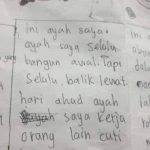 ini ayah saya.
ayah saya selalu
bangun awal. Tapi
selalu balik lewat
hari ahad ayah
saya kerja
orang lain cuti